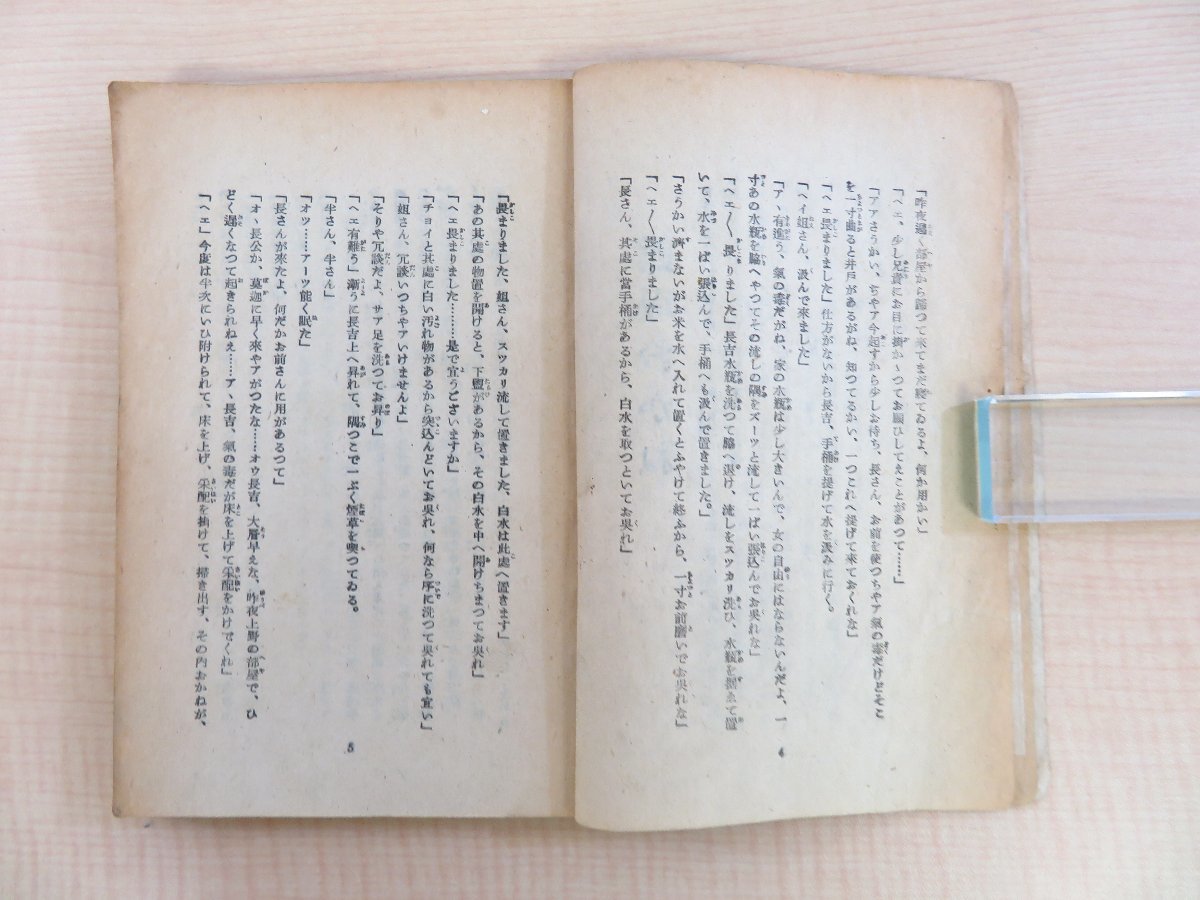 「昨夜遲く部屋から歸つて來てまだ寢てゐるよ、何か用かい」
「ヘエ、少し兄貴にお目に掛かつてお願ひしてえことがあつて……」
「アアさうかい、ぢやア今起すから少しお待ち、長さん、お前を使つちやア氣の毒だけどそこ
を一寸曲ると井戸があるがね、知つてるかい、一つこれへ提げて來ておくれな」
「ヘエ畏まりました」仕方がないから長吉、手桶を提げて水を汲みに行く。
「ヘイ姐さん、汲んで來ました」
「アヽ有難う、氣の毒だがね、家の水瓶は少し大きいんで、女の自由にはならないんだよ、一
寸あの水瓶を脇へやつてその流しの隅をズーツと流して一ぱい張込んでお呉れな」
「ヘエ〳〵畏りました」長吉水瓶を洗つて脇へ退け、流しをスツカリ洗ひ、水瓶を据ゑて置
いて、水を一ぱい張込んで、手桶へも汲んで置きました。」
「さうかい濟まないがお米を水へ入れて置くとふやけて終ふから、一寸お前磨いでお呉れな」
「ヘエ〳〵畏まりました」
「長さん、其處に當手桶があるから、白水を取つといてお呉れ」
4
「畏まりました、姐さん、スツカリ流して置きました、白水は此處へ置きます」
「あの其處の物置を開けると、下盥があるから、その白水を中へ開けちまつてお呉れ」
「ヘエ畏まりました………是で宜うございますか」
「チヨイと其處に白い汚れ物があるから突込んどいてお呉れ、何なら序に洗つて呉れても宜い」
「姐さん、冗談いつちやアいけませんよ」
「そりや冗談だよ、サア足を洗つてお昇り」
「ヘエ有難う」漸うに長吉上へ昇れて、隅つこで一ぷく煙草を喫つてゐる。
「半さん、半さん」
「オツ……アーツ能く眠た」
「長さんが來たよ、何だかお前さんに用があるつて」
「オヽ長公か、莫迦に早く來やアがつたな……オウ長吉、大層早えな、昨夜上野の部屋で、ひ
どく遲くなつて起きられねえ……アヽ長吉、氣の毒だが床を上げて采配をかけてくれ」
「ヘエ」今度は半次にいひ附けられて、床を上げ、采配を掛けて、掃き出す、その内おかねが、
5